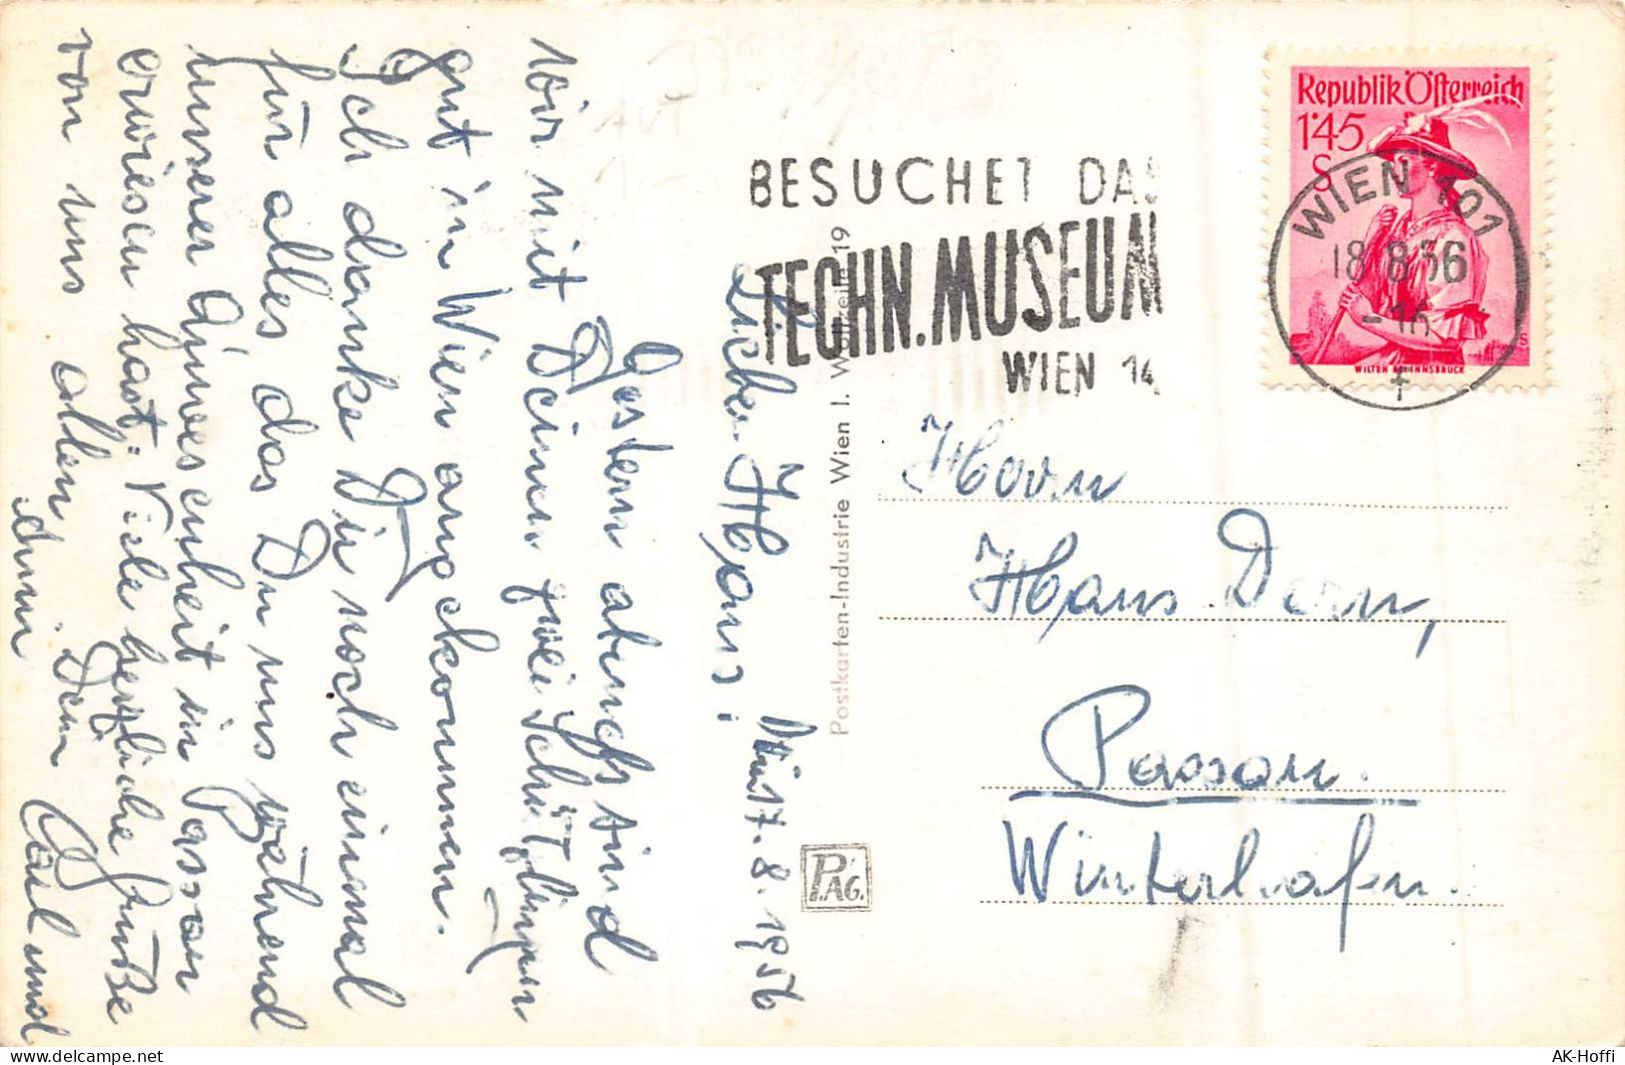 Lieber Hans!
17.8.1956
Gestern abends sind
wir mit Deinen zwei Schützlingen
gut in Wien angekommen.
Ich danke Dir noch einmal
für alles das Du uns während
unserer Anwesenheit in Passau
erwiesen hast. Viele herzliche Grüße
von uns allen Dein Karl und
Anni
Postkarten-Industrie Wien I. Wollzeile 19
P.AG.
BESUCHET DAS
TECHN. MUSEUM
WIEN 14
Republik Österreich
1'45
S
WILTEN BEI INNSBRUCK
WIEN 101
18.8.56
-16
Herrn
Hans Dorn,
Passau.
Winterhafen.
www.delcampe.net
AK-Hoffi